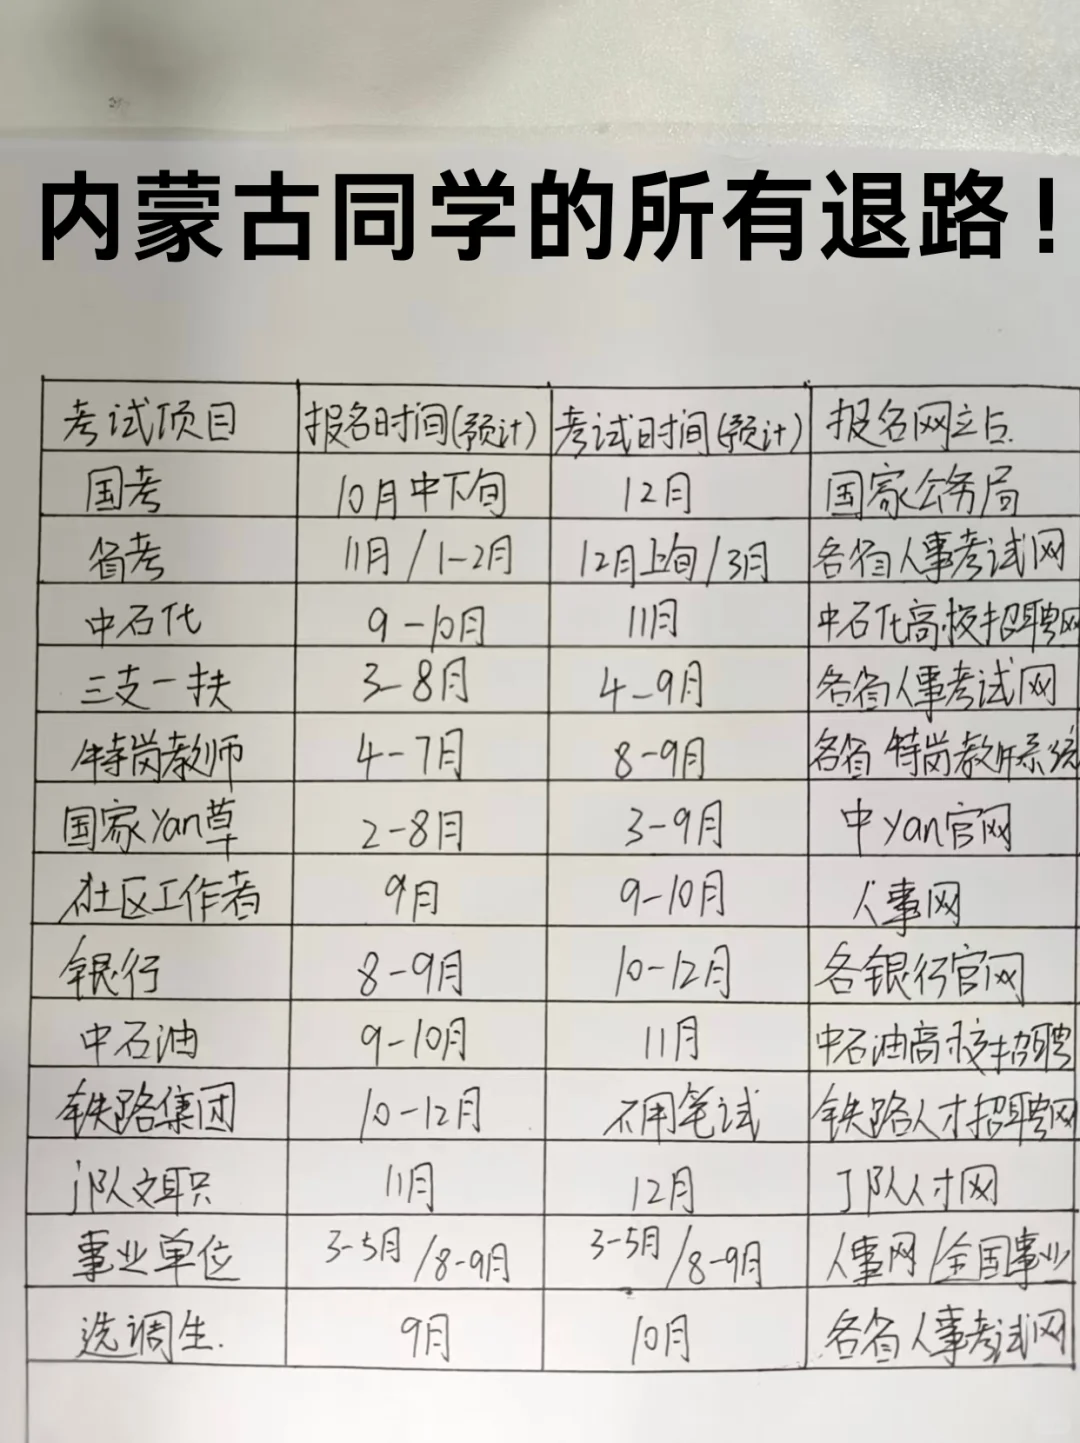 内蒙古同学的所有退路！
考试项目 报名时间(预计) 考试时间(预计) 报名网站
国考 10月中下旬 12月 国家公务局
省考 11月/1-2月 12月上旬/3月 各省人事考试网
中石化 9-10月 11月 中石化高校招聘网
三支一扶 3-8月 4-9月 各省人事考试网
特岗教师 4-7月 8-9月 各省特岗教师系统
国家yan草 2-8月 3-9月 中yan官网
社区工作者 9月 9-10月 人事网
银行 8-9月 10-12月 各银行官网
中石油 9-10月 11月 中石油高校招聘
铁路集团 10-12月 不用笔试 铁路人才招聘网
j队文职 11月 12月 J队人才网
事业单位 3-5月/8-9月 3-5月/8-9月 人事网/全国事业
选调生. 9月 10月 各省人事考试网